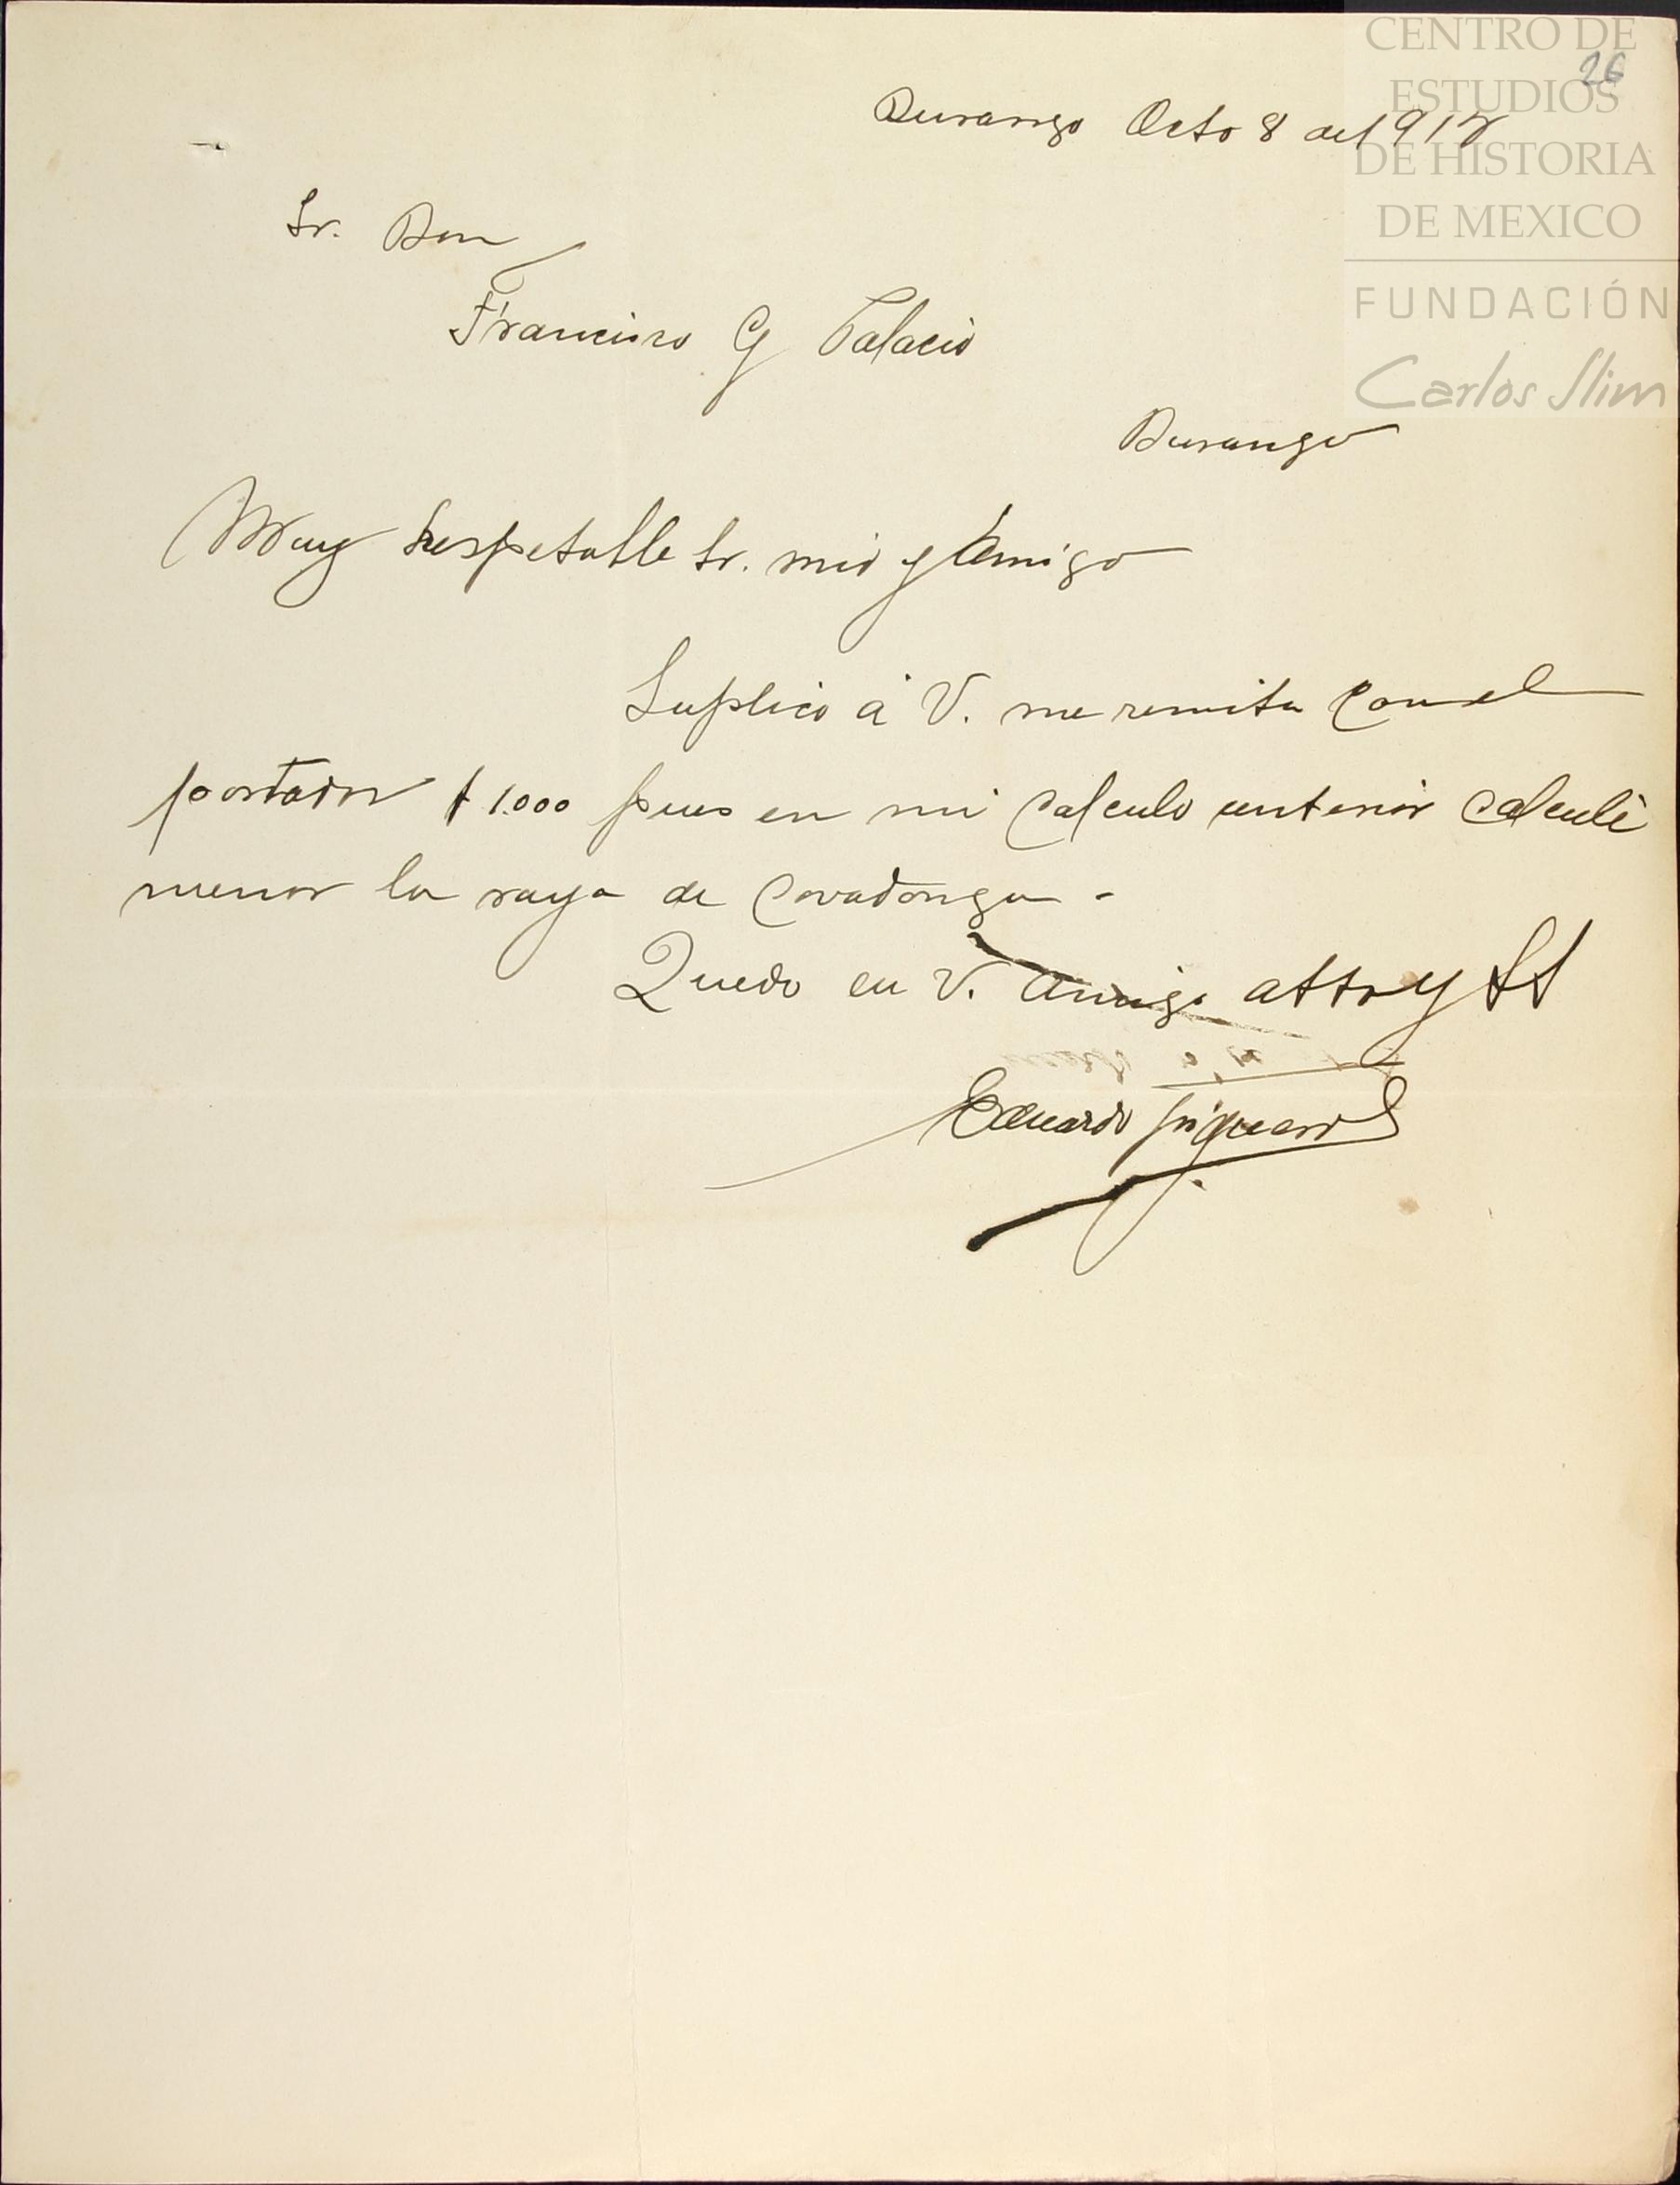 CENTRO DE
ESTUDIOS
DE HISTORIA
DE MEXICO
FUNDACIÓN
Carlos Slim
26
Durango Octo 8 del 912
Sr. Don
Francisco G Palacio
Durango
Muy Respetable Sr. mio y Amigo
Suplico á V. me remita con el
portador $ 1.000 pues en mi calculo anterior calculé
menor la raya de Covadonga -
Quedo su V. amigo atto y SS
Eduardo